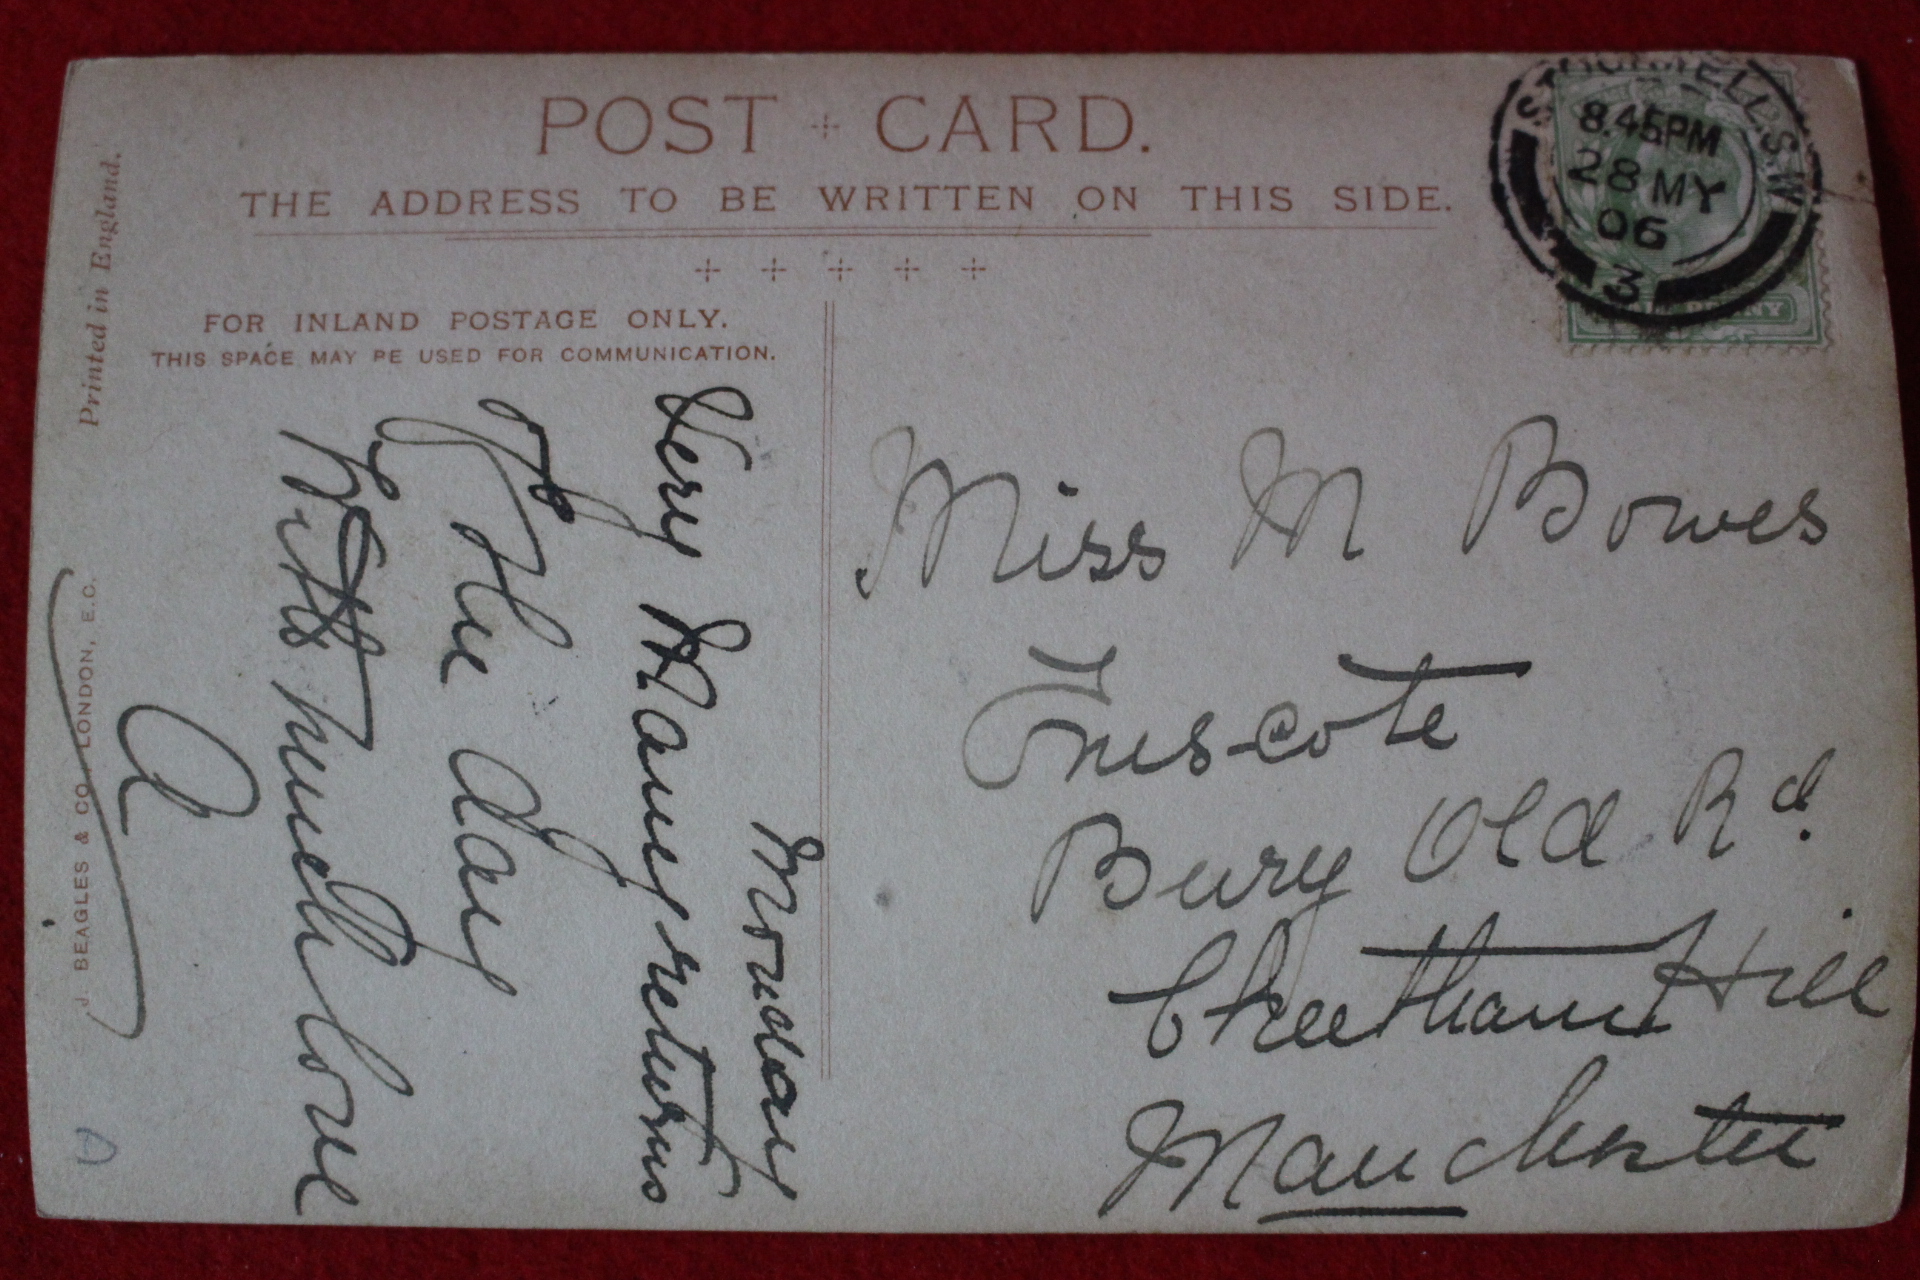 POST CARD.
THE ADDRESS TO BE WRITTEN ON THIS SIDE.
FOR INLAND POSTAGE ONLY.
THIS SPACE MAY BE USED FOR COMMUNICATION.
Printed in England.
J. BEAGLES & CO. LONDON, E.C.
STOCKWELL S.W
8.45PM
28 MY
06
3
Monday
Very Many returns
of the day
With much love
A
Miss M Bowes
Bury Old Rd.
Cheetham Hill
Manchester